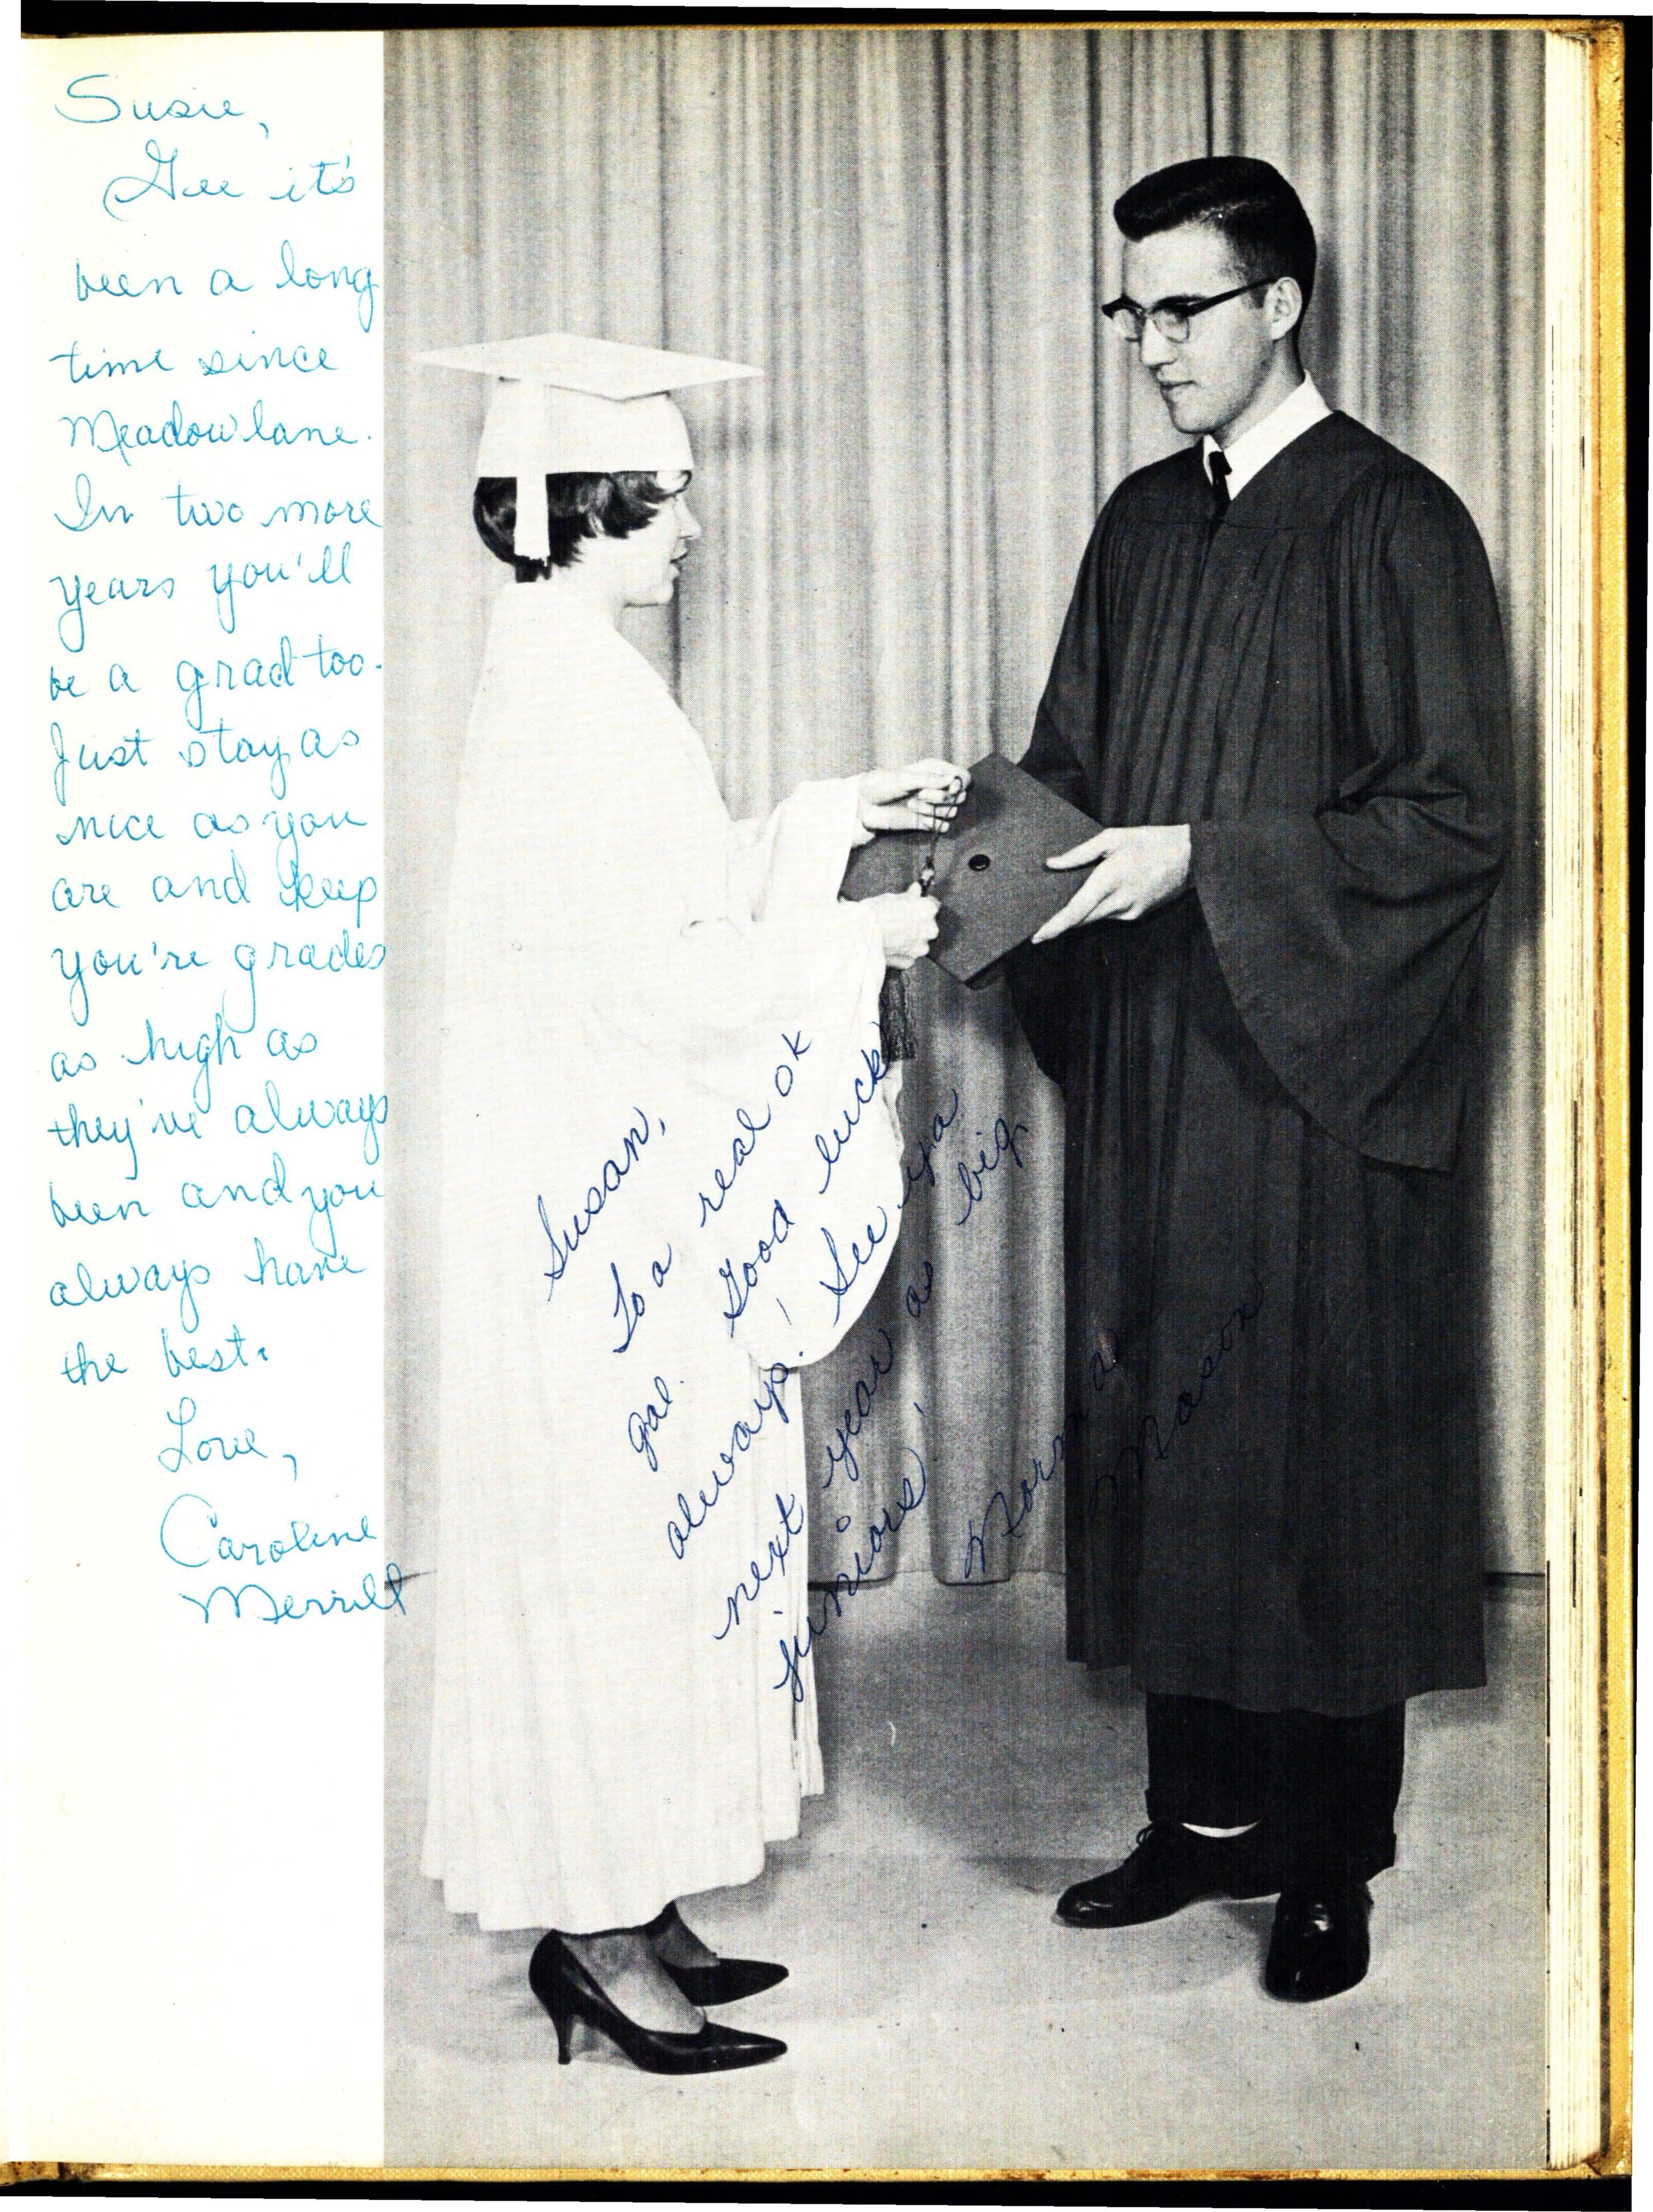 Susie,
Gee it's
been a long
time since
Meadowlane.
In two more
years you'll
be a grad too.
Just stay as
nice as you
are and keep
you're grades
as high as
they've always
been and you
always have
the best.
Love,
Caroline
Merrill
Susan,
To a real ok
gal. Good luck
always! See ya
next year as big
juniors!
Norma
Mason